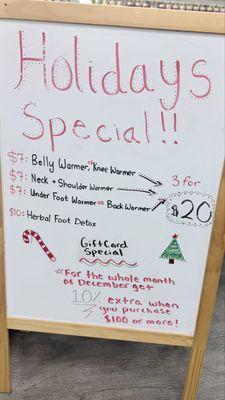 Holidays
Special!!
$7: Belly Warmer or Knee Warmer
$7: Neck + Shoulder Warmer
3 for
$7: Under Foot Warmer or Back Warmer
$20
$10: Herbal Foot Detox
Gift Card
Special
*For the whole month
of December get
10% extra when
you purchase
$100 or more!